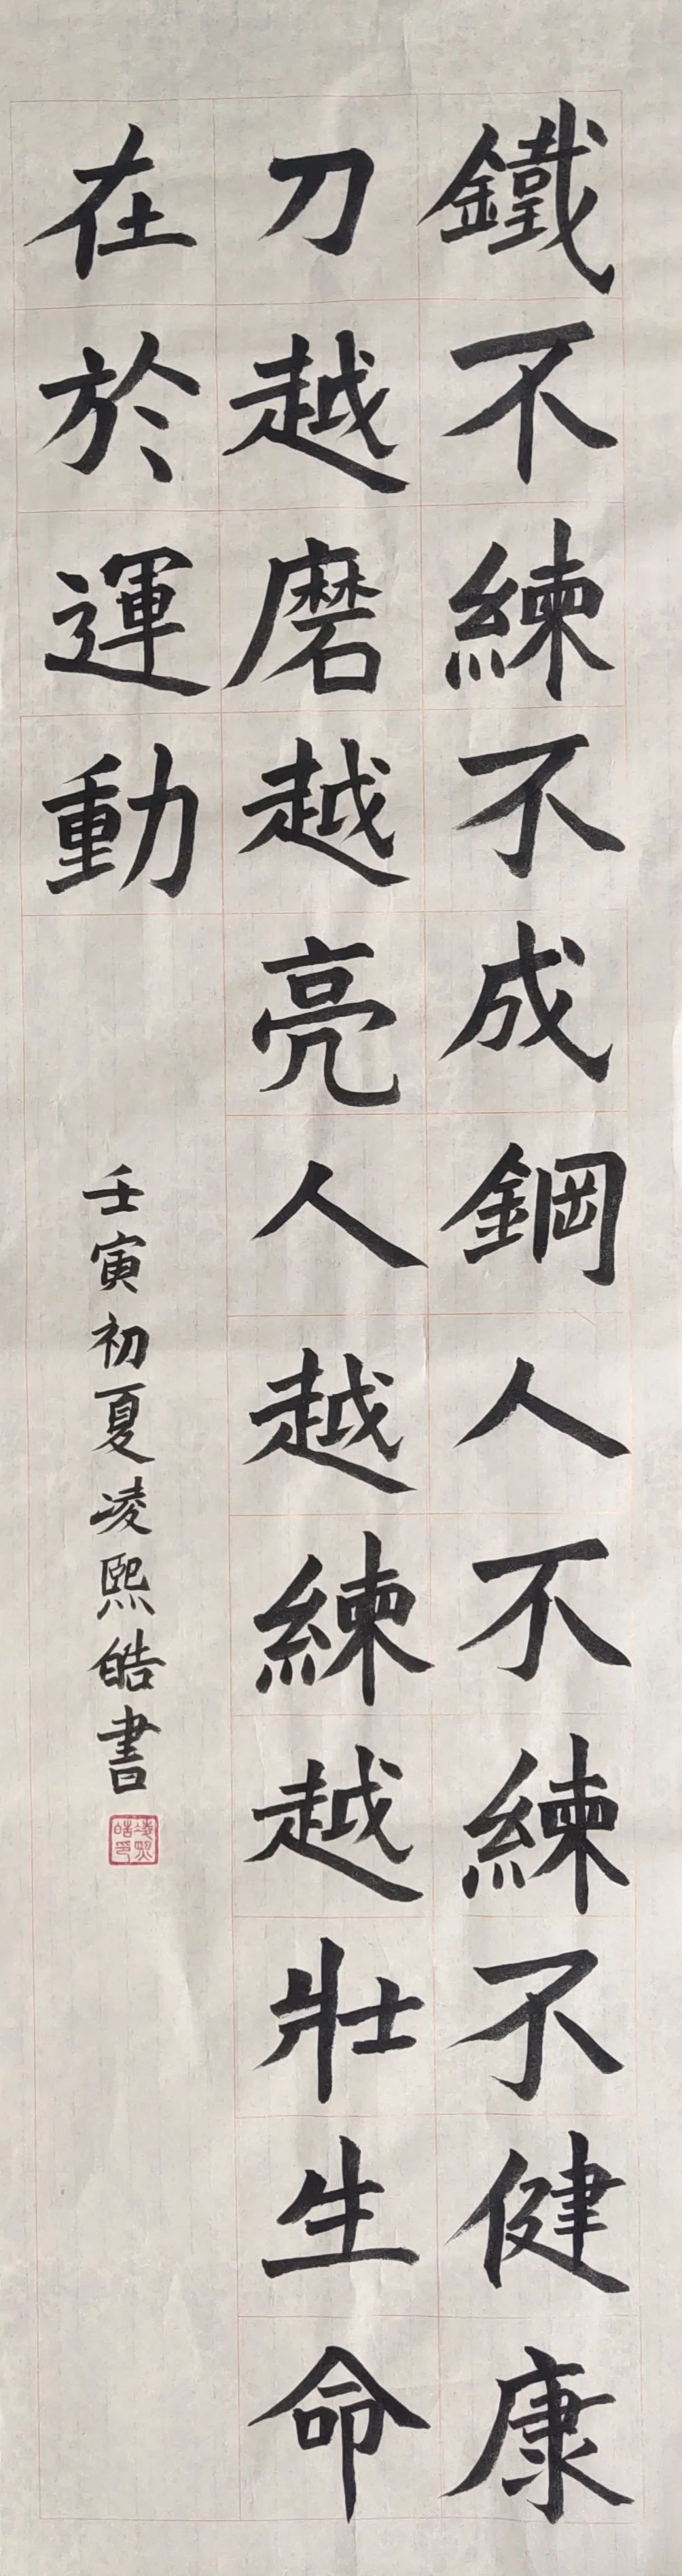 鐵不練不成鋼人不練不健康
刀越磨越亮人越練越壯生命
在於運動
壬寅初夏凌熙皓書
凌熙
皓印